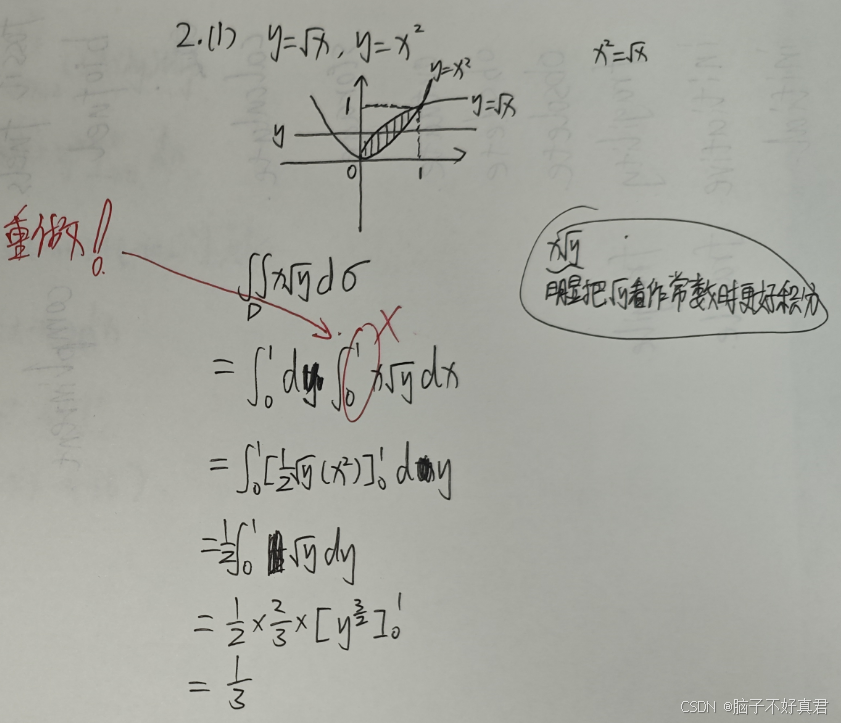 2.(1) y=√x, y=x²
x²=√x
y=x²
1
y=√x
y
0
1
重做!
∬x√y dσ
D
x√y
明显把√y看作常数时更好积分
= ∫₀¹ dy ∫₀¹ x√y dx
×
= ∫₀¹ [½√y (x²)]₀¹ dy
= ½∫₀¹ √y dy
= ½ × ⅔ × [y^(3/2)]₀¹
= ⅓
CSDN @脑子不好真君